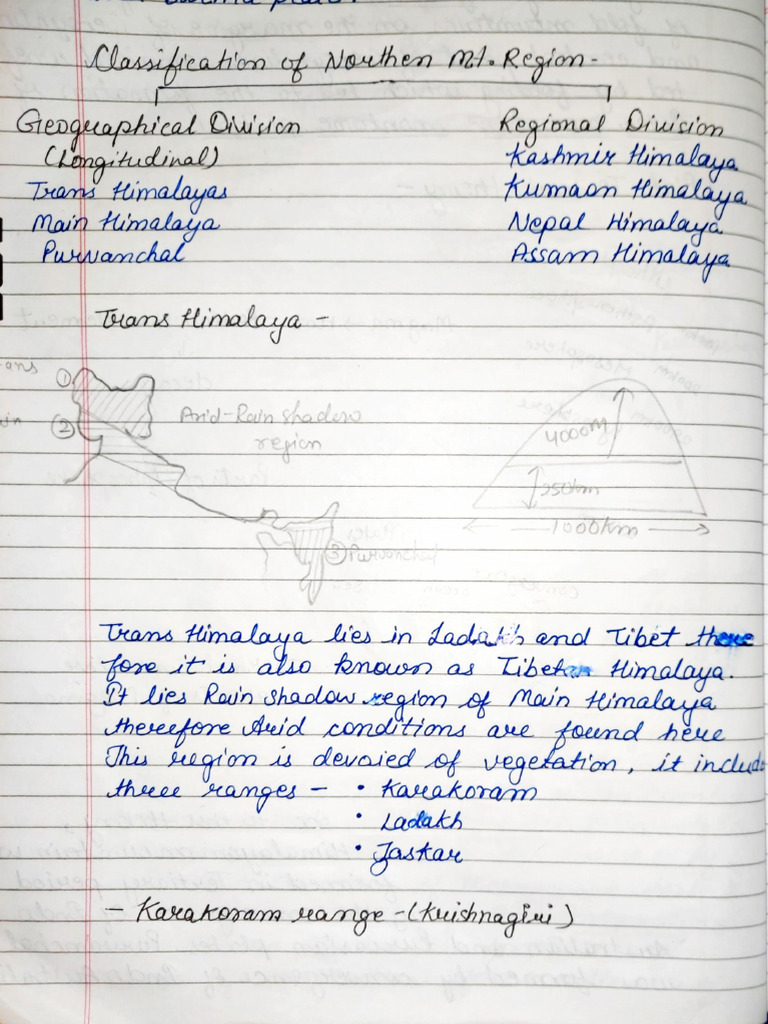 Classification of Northen Mt. Region-
Geographical Division
(Longitudinal)
Trans Himalayas
Main Himalaya
Purvanchal
Regional Division
Kashmir Himalaya
Kumaon Himalaya
Nepal Himalaya
Assam Himalaya
Trans Himalaya -
①
②
Arid-Rain shadow
region
③ Purvanchal
4000m
250km
1000km
Trans Himalaya lies in Ladakh and Tibet there
fore it is also known as Tibetan Himalaya.
It lies Rain shadow region of Main Himalaya
therefore Arid conditions are found here
This region is devoied of vegetation, it include
three ranges - • Karakoram
• Ladakh
• Jaskar
- Karakoram range -(Krishnagiri)